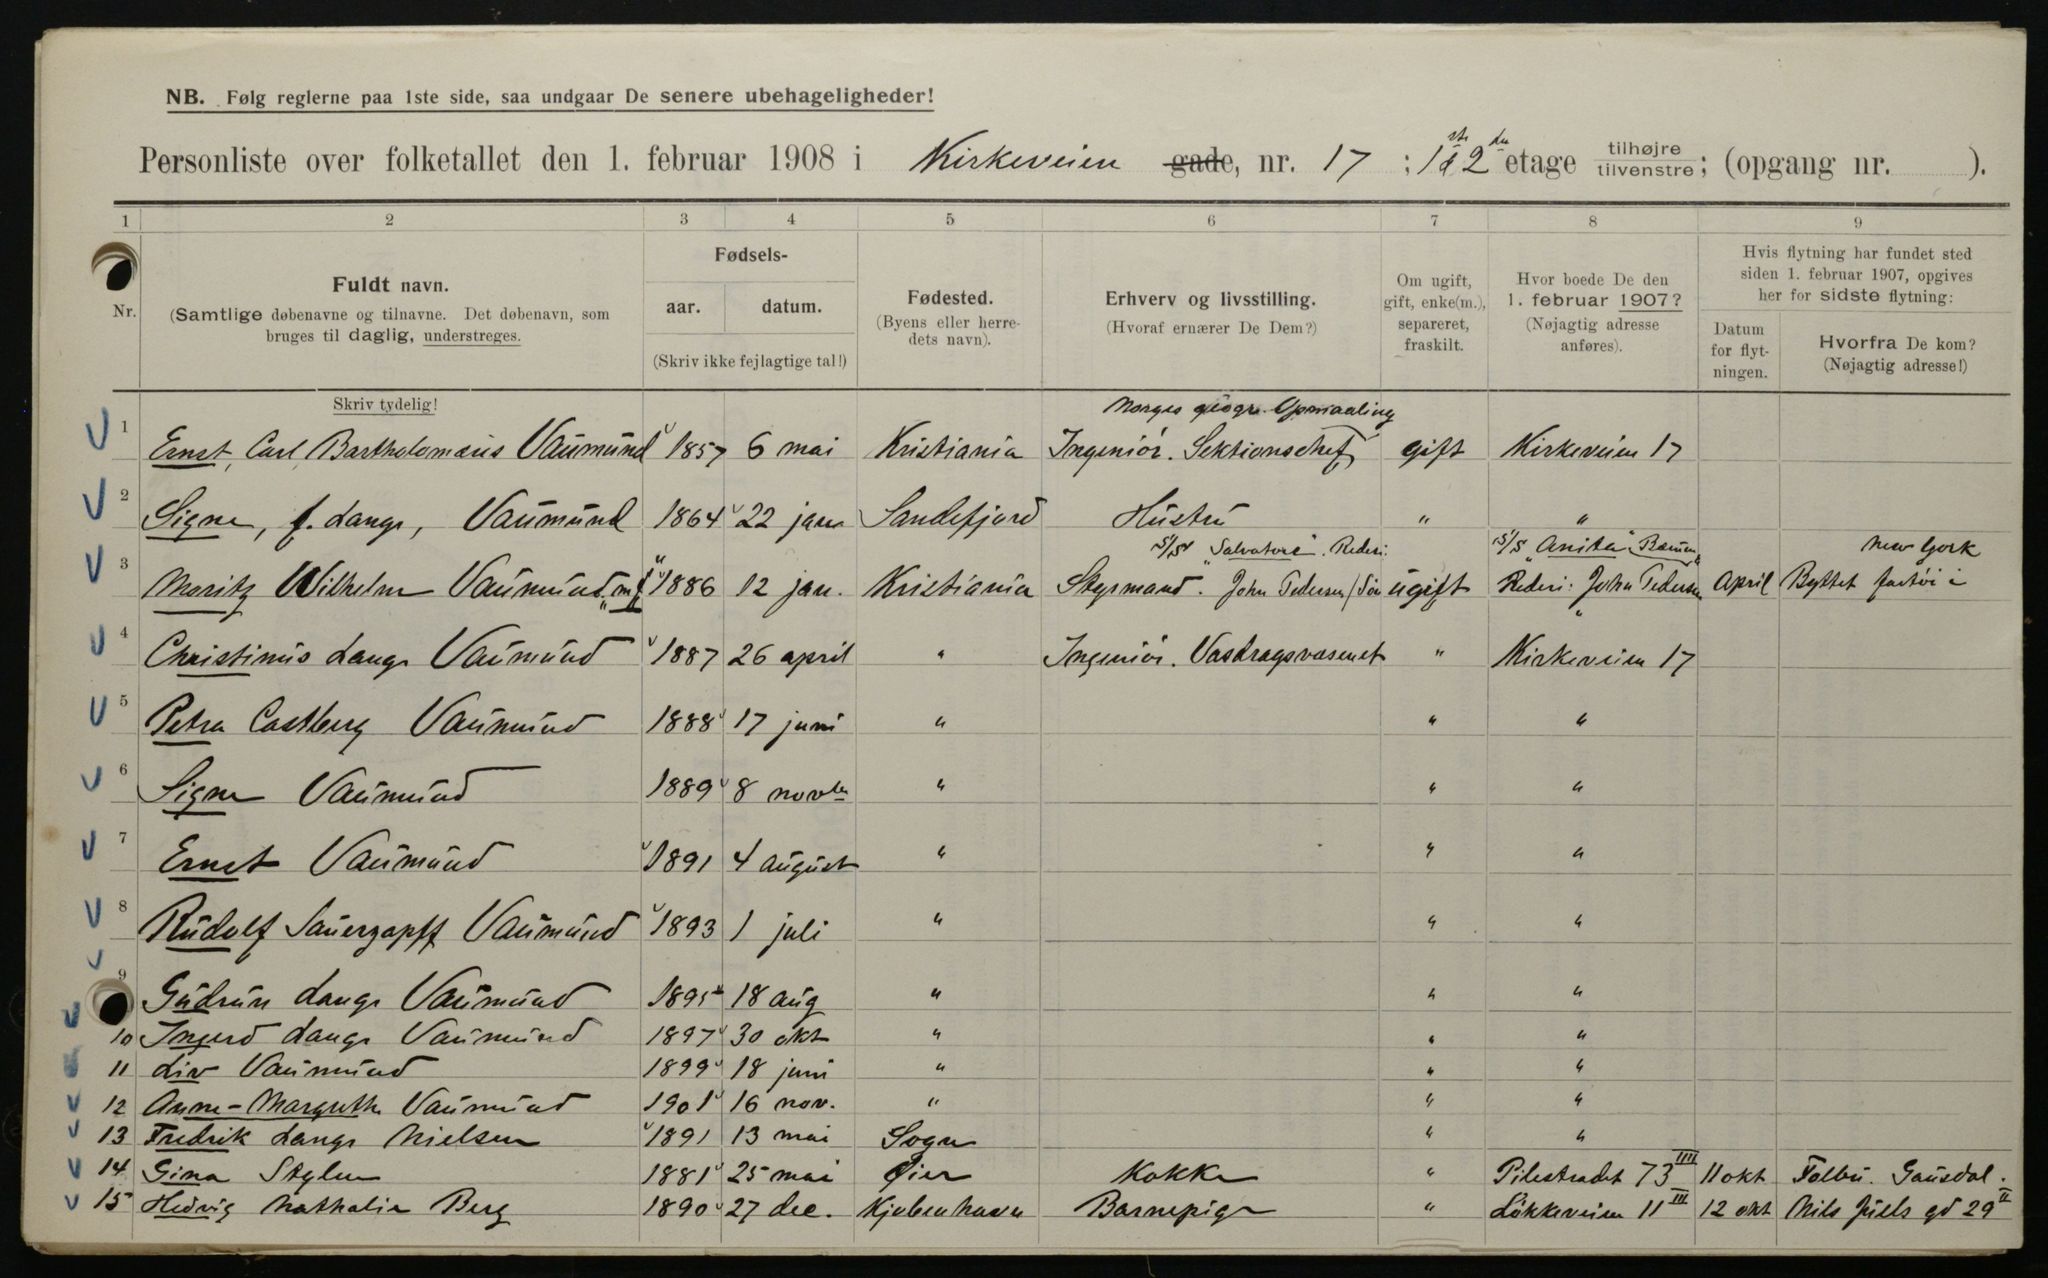 NB. Følg reglerne paa 1ste side, saa undgaar De senere ubehageligheder!
Personliste over folketallet den 1. februar 1908 i Kirkeveien gade, nr. 17 : 1ste & 2den etage tilhøjre tilvenstre; (opgang nr. ).
1 2 3 4 5 6 7 8 9
Nr.
Fuldt navn.
(Samtlige døbenavne og tilnavne. Det døbenavn, som
bruges til daglig, understreges.
Skriv tydelig!
Fødsels-
aar. datum.
(Skriv ikke fejlagtige tal!)
Fødested.
(Byens eller herre-
dets navn).
Erhverv og livsstilling.
(Hvoraf ernærer De Dem?)
Om ugift,
gift, enke(m.),
separeret,
fraskilt.
Hvor boede De den
1. februar 1907?
(Nøjagtig adresse
anføres).
Hvis flytning har fundet sted
siden 1. februar 1907, opgives
her for sidste flytning:
Datum
for flyt-
ningen.
Hvorfra De kom?
(Nøjagtig adresse!)
Norges geogr. Opmaaling
1 Ernst, Carl Bartholomæus Vaumund 1857 6 mai Kristiania Ingeniör. Sektionschef gift Kirkeveien 17
2 Signe, f. Lange, Vaumund 1864 22 jan Sandefjord Hustru " "
S/S "Salvatore". Rederi: S/S "Anita" New York
3 Moritz Wilhelm Vaumund "mf" 1886 12 jan. Kristiania Styrmand. John Pedersen / Sön ugift Rederi: John Pedersen April Byttet fartöi i
4 Christinus Lange Vaumund 1887 26 april " Ingeniör. Vasdragsvæsenet " Kirkeveien 17
5 Petra Castberg Vaumund 1888 17 juni " " "
6 Signe Vaumund 1889 8 novbr " " "
7 Ernst Vaumund 1891 4 august " " "
8 Rudolf Sauerzapff Vaumund 1893 1 juli " " "
9 Gudrun Lange Vaumund 1895 18 aug " " "
10 Ingerd Lange Vaumund 1897 30 okt " " "
11 Liv Vaumund 1899 18 juni " " "
12 Anne-Margrethe Vaumund 1901 16 nov. " " "
13 Fredrik Lange Nielsen 1891 13 mai Sogn " "
14 Gina Skylen 1881 25 mai Öier Kokke " Pilestrædet 73 IIII 11 okt Følbu. Gausdal.
15 Hedvig Nathalie Berg 1890 27 dec. Kjøbenhavn Barnepige " Lökkeveien 11 III 12 okt Nils Juels gd 29 II